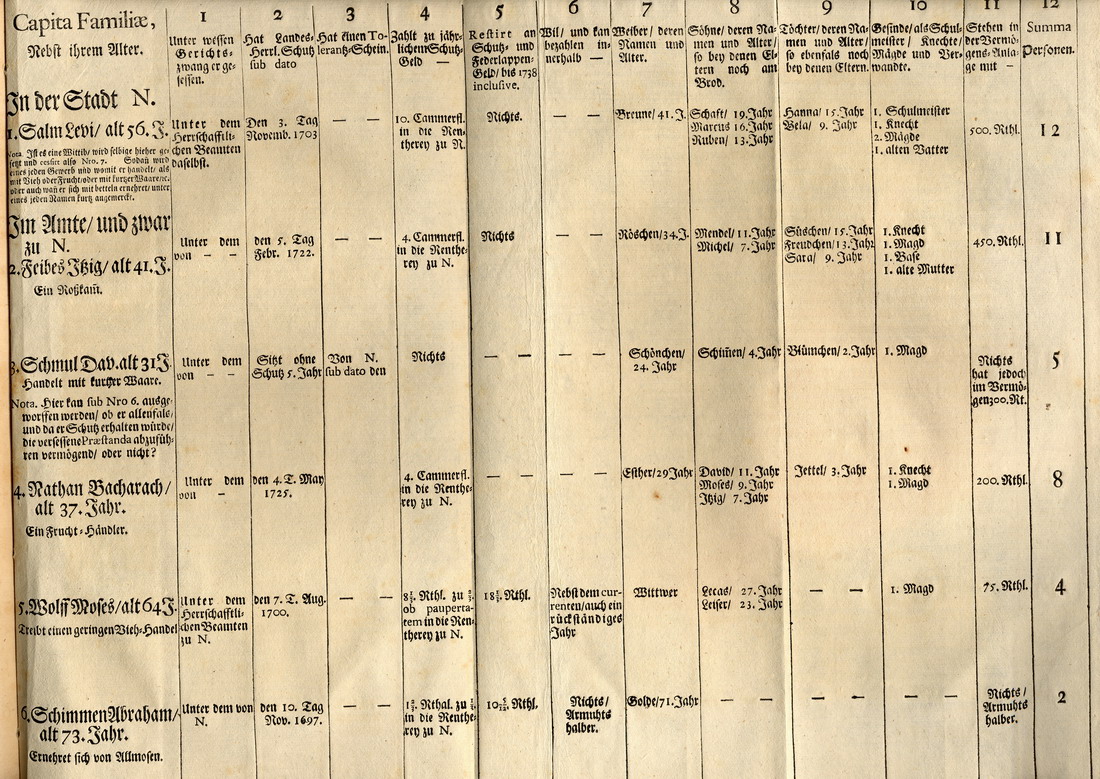 Capita Familiæ,
Nebst ihrem Alter.
1
Unter wessen
Gerichts-
zwang er ge-
sessen.
2
Hat Landes-
Herrl. Schutz
sub dato
3
Hat einen To-
lerantz-Schein.
4
Zahlt zu jähr-
lichem Schutz-
Geld —
5
Restirt an
Schutz- und
Federlappen-
Geld/ bis 1738
inclusive.
6
Wil/ und kan
bezahlen in-
nerhalb —
7
Weiber/ deren
Namen und
Alter.
8
Söhne/ deren Na-
men und Alter/
so bey denen El-
tern noch am
Brod.
9
Töchter/ deren Na-
men und Alter/
so ebenfals noch
bey denen Eltern.
10
Gesinde/ als Schul-
meister/ Knechte/
Mägde und Ver-
wandte.
11
Stehen in
der Vermö-
gens-Anla-
ge mit —
12
Summa
Personen.
In der Stadt N.
1. Salm Levi/ alt 56. J.
Nota. Ist es eine Wittib/ wird selbige hieher ge-
setzt und cessirt also Nro. 7. Sodañ wird
eines jeden Gewerb und womit er handelt/ als
mit Vieh oder Frucht/ oder mit kurtzer Waare/ꝛc.
oder auch wañ er sich mit betteln ernehret/ unter
eines jeden Namen kurtz angemerckt.
Unter dem
Herrschafftli-
chen Beamten
daselbst.
Den 3. Tag
Novemb. 1703
— —
10. Cammerfl.
in die Ren-
therey zu N.
Nichts.
— —
Breune/ 41. J.
Schaft/ 19. Jahr
Marcus 16. Jahr
Ruben/ 13. Jahr
Hanna/ 15. Jahr
Bela/ 9. Jahr
1. Schulmeister
1. Knecht
2. Mägde
1. alten Vatter
500. Rthl.
12
Im Amte/ und zwar
zu N.
2. Feibes Itzig/ alt 41. J.
Ein Roßkam̃.
Unter dem
von — —
den 5. Tag
Febr. 1722.
— —
4. Cammerfl.
in die Renthe-
rey zu N.
Nichts
— —
Röschen/ 34. J.
Mendel/ 11. Jahr
Michel/ 7. Jahr
Süschen/ 15. Jahr
Freudchen/ 13. Jahr
Sara/ 9. Jahr
1. Knecht
1. Magd
1. Base
1. alte Mutter
450. Rthl.
11
3. Schmul Dav. alt 31 J.
Handelt mit kurtzer Waare.
Nota. Hier kan sub Nro 6. ausge-
worffen werden/ ob er allenfals/
und da er Schutz erhalten würde/
die versessene Præstanda abzufüh-
ren vermögend/ oder nicht?
Unter dem
von — —
Sitzt ohne
Schutz 5. Jahr
Von N.
sub dato den
Nichts
— —
— —
Schönchen/
24. Jahr
Schim̃en/ 4. Jahr
Blümchen/ 2. Jahr
1. Magd
Nichts
hat jedoch
im Vermö-
gen 300. Rt.
5
4. Nathan Bacharach/
alt 37. Jahr.
Ein Frucht-Händler.
Unter dem
von —
den 4. T. May
1725.
— —
4. Cammerfl.
in die Renthe-
rey zu N.
— —
— —
Esther/ 29 Jahr
David/ 11. Jahr
Moses/ 9. Jahr
Itzig/ 7. Jahr
Jettel/ 3. Jahr
1. Knecht
1. Magd
200. Rthl.
8
5. Wolff Moses/ alt 64 J.
Treibt einen geringen Vieh-Handel
Unter dem
Herrschafftli-
chen Beamten
zu N.
den 7. T. Aug.
1700.
— —
Rthl. zu
ob pauperta-
tem in die Ren-
therey zu N.
Rthl.
Nebst dem cur-
renten/ auch ein
rückständiges
Jahr
Wittwer
Lucas/ 27. Jahr
Leiser/ 23. Jahr
— —
1. Magd
75. Rthl.
4
6. Schimmen Abraham/
alt 73. Jahr.
Ernehret sich von Allmosen.
Unter dem von
N.
den 10. Tag
Nov. 1697.
— —
Rthal. zu
in die Renthe-
rey zu N.
Rthl.
Nichts/
Armuhts
halber.
Golde/ 71. Jahr
— —
— —
— —
Nichts/
Armuhts
halber.
2